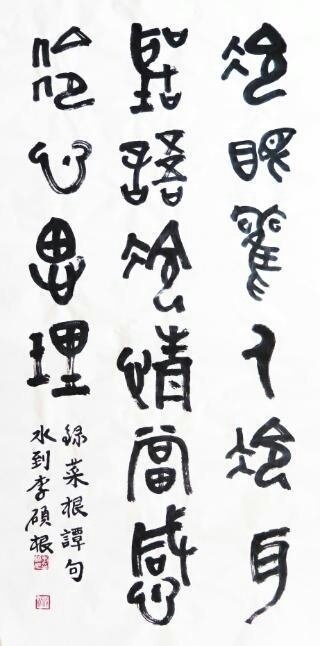 冷眼觀人冷耳
聽語冷情當感
冷心思理
録菜根譚句
水到李碩根